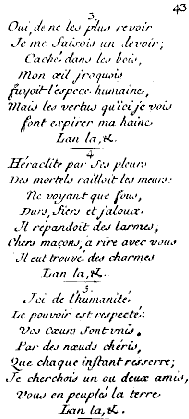 43
3.
Oui de ne les plus revoir
Je me faisois un devoir;
Caché dans les bois,
Mon œil iroquois
fuyoit l'espece humaine,
Mais les vertus qu'ici je vois
font expirer ma haine
Lan la, &.
4
Héraclite par ses pleurs
Des mortels railloit les mœurs:
Ne voyant que fous,
Durs, fiers et jaloux.
Il répandoit des larmes,
Chers maçons, à rire avec vous
Il eut trouvé des charmes
Lan la, &.
5.
Ici de l'humanité
Le pouvoir est respecté:
Vos cœurs sont unis,
Par des nœuds chéris,
Que chaque instant resserre;
Je cherchois un ou deux amis,
Vous en peuplés la terre
Lan la, &.